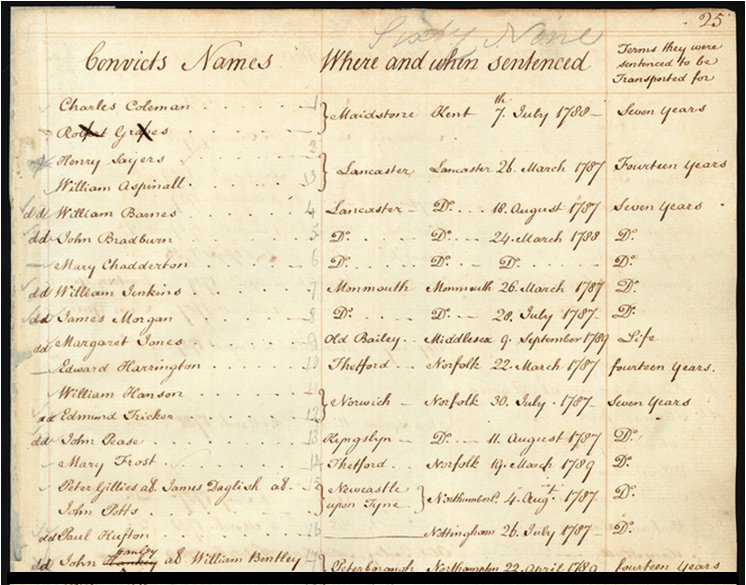 25
Sixty Nine
Convicts Names Where and when sentenced Terms they were sentenced to be Transported for
Charles Coleman 1 Maidstone Kent 7th. July 1788 Seven Years
Robert Graves
Henry Sayers 2 Lancaster Lancaster 26. March 1787 Fourteen Years
William Aspinall 3
dd William Barnes 4 Lancaster Do. 18. August 1787 Seven Years
dd John Bradburn 5 Do. Do. 24. March 1788 Do.
Mary Chadderton 6 Do. Do. Do. Do.
dd William Jenkins 7 Monmouth Monmouth 26. March 1787 Do.
dd James Morgan 8 Do. Do. 28. July 1787 Do.
dd Margaret Jones 9 Old Bailey Middlesex 9. September 1789 Life
Edward Harrington 10 Thetford Norfolk 22. March 1787 fourteen Years.
William Hanson 11 Norwich Norfolk 30. July 1787 Seven Years
dd Edmund Tricker 12
dd John Pease 13 Do. 11. August 1787 Do.
Mary Frost 14 Thetford Norfolk 19. March 1789 Do.
Peter Gillies als. James Daglish als. 15 Newcastle upon Tyne Northumberld. 4. Augst. 1787 Do.
John Potts
dd Paul Hufton 16 Nottingham 26. July 1787 Do.
Handy
dd John Hankey als. William Bentley 17 Peterborough Northampton 22. April 1789 fourteen Years